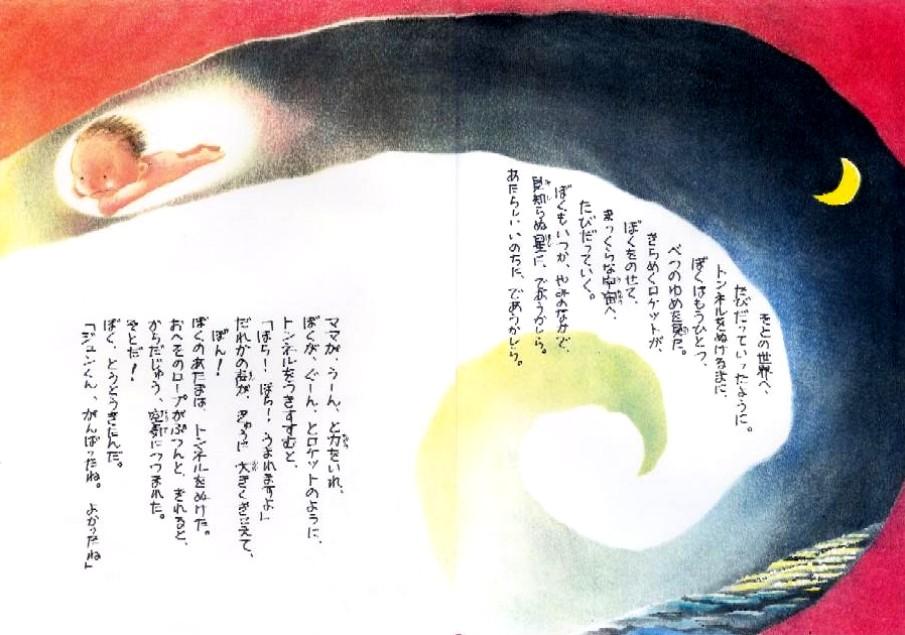 そとの世界へ、
たびだっていったように。
トンネルをぬけるまに、
ぼくはもうひとつ、
べつのゆめを見た。
きらめくロケットが、
ぼくをのせて、
まっくらな宇宙へ、
たびだっていく。
ぼくもいつか、やみのなかで、
見知らぬ星に、であうかしら。
あたらしいいのちに、であうかしら。
ママが、うーん、と力をいれ、
ぼくが、ぐーん、とロケットのように、
トンネルをつきすすむと、
「ほら！ ほら！ うまれますよ」
だれかの声が、きゅうに 大きくきこえて、
ぽん！
ぼくのあたまは、トンネルをぬけた。
おへそのロープがぷつんと、きれると、
からだじゅう、空気につつまれた。
そとだ！
ぼく、とうとうきたんだ。
「ジュンくん、がんばったね。 よかったね」